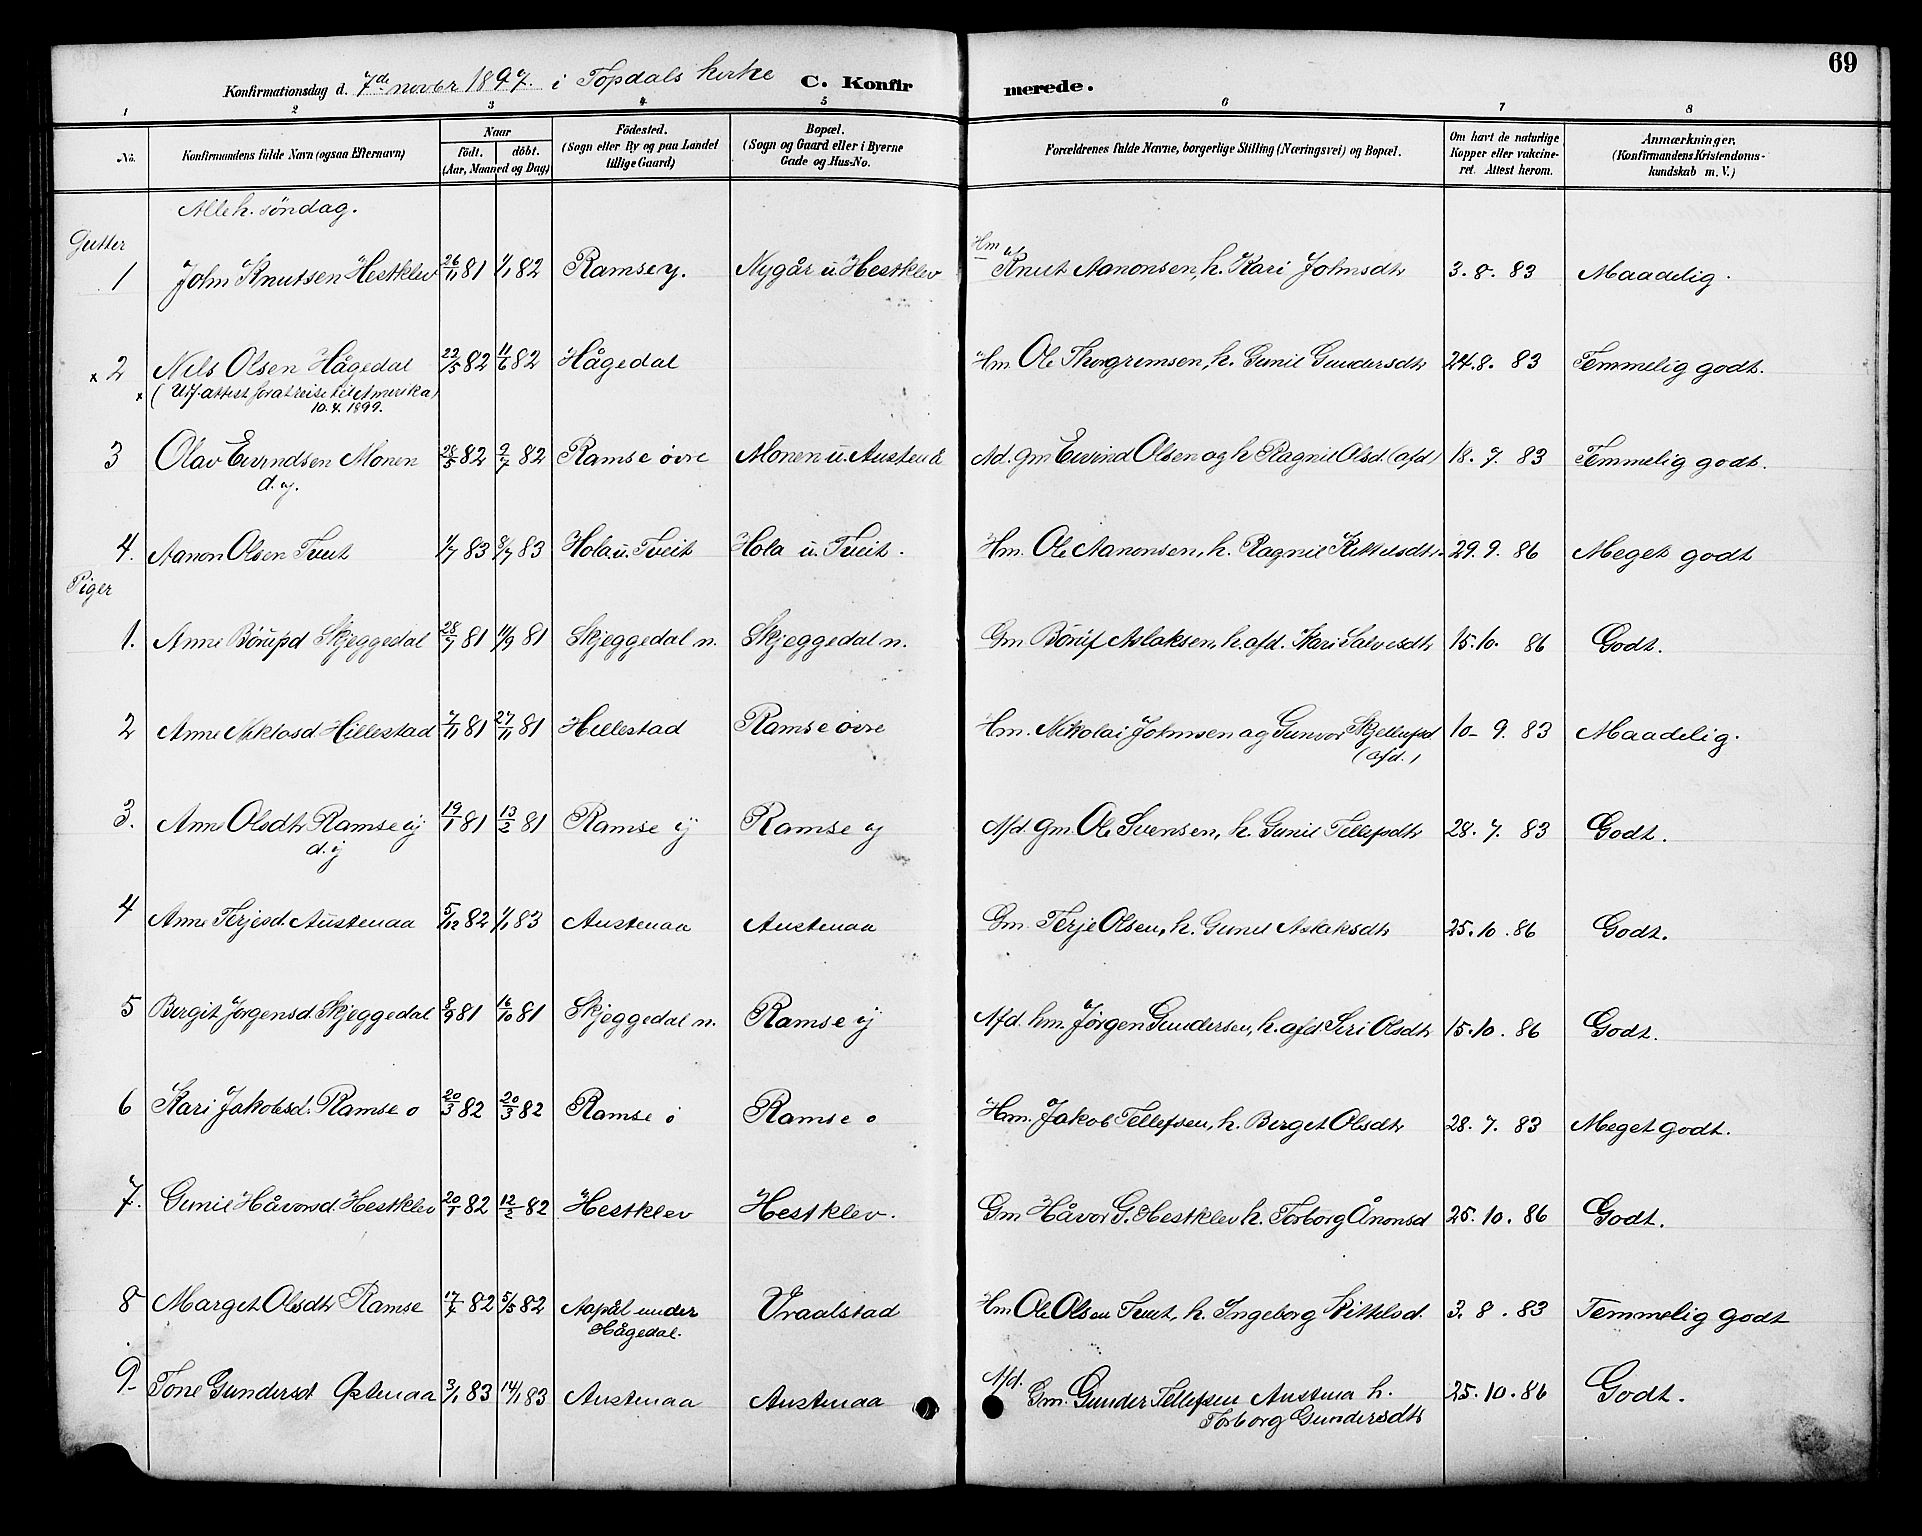 69
Konfirmationsdag d. 7de novbr 1897. i Topdals kirke C. Konfirmerede.
1 2 3 4 5 6 7 8
No. Konfirmandens fulde Navn (ogsaa Efternavn) Naar födt. döbt. (Aar, Maaned og Dag) Födested. (Sogn eller By og paa Landet tillige Gaard) Bopæl. (Sogn og Gaard eller i Byerne Gade og Hus-No. Forældrenes fulde Navne, borgerlige Stilling (Næringsvei) og Bopæl. Om havt de naturlige Kopper eller vakcineret. Attest herom. Anmærkninger. (Konfirmandens Kristendomskundskab m. V.)
Alle h. söndag.
Gutter
1 John Knutsen Hestklev 26/11 81 1/1 82 Ramse y. Nygår u Hestklev Hm Knut Aanonsen, h. Kari Johnsdtr 3. 8. 83 Maadelig.
x 2 Nels Olsen Hågedal 22/5 82 11/6 82 Hågedal Hm. Ole Thorgremsen, h. Gunil Gundersdtr 24. 8. 83 Temmelig godt.
x (Utf. attest for at reise til Amerika)
10. 4. 1899.
3 Olav Eivindsen Monen 28/5 82 2/7 82 Ramse övre Monen u. Austenå Ad. gm Eivind Olsen og h Ragnil Olsd. (afd) 18. 7. 83 Temmelig godt.
d. y.
4. Aanon Olsen Tveit 1/7 83 8/7 83 Hola u. Tveit Hola u. Tveit. Hm. Ole Aanonsen, h. Ragnil Kittelsdtr. 29. 9. 86 Meget godt
Piger
1. Anne Börufsd Skjeggedal 28/7 81 11/9 81 Skjeggedal n. Skjeggedal n. Gm Böruf Aslaksen, h. afd. Kari Salvesdtr 15. 10. 86 Godt.
2 Anne Niklosd. Hillestad 7/11 81 27/11 81 Hillestad Ramse övre Hm. Nikolai Johnsen og Gunvor Skjellufsd 10- 9. 83 Maadelig.
(afd.)
3. Anne Olsdtr Ramse y 19/1 81 13/2 81 Ramse y Ramse y Afd. gm. Ole Svensen, h. Gunil Tellefsdtr 28. 7. 83 Godt.
d. y
4 Anne Terjesd. Austenaa 5/12 82 1/1 83 Austenaa Austenaa Gm. Terje Olsen, h. Gunil Aslaksdtr 25. 10. 86 Godt.
5 Bergit Jörgensd. Skjeggedal 8/9 81 16/10 81 Skjeggedal n. Ramse y Afd. hm. Jörgen Gundersen, h. afd Seri Olsdtr 15. 10. 86 Godt.
6 Kari Jakobsd. Ramse ö 20/3 82 20/3 82 Ramse ö Ramse ö Hm. Jakob Tellefsen, h. Berget Olsdtr 28. 7. 83 Meget godt.
7. Gunil Håvorsd. Hestklev 20/1 82 12/2 82 Hestklev Hestklev. Gm Håvor G. Hestklev h. Torborg Ånonsd 25. 10. 86 Godt.
8 Marget Olsdtr Ramse 17/4 82 5/5 82 Aapål under Vraalstad Hm Ole Olsen Tveit, h. Ingeborg Kittelsd. 3. 8. 83 Temmelig godt
Hågedal.
9- Tone Gundersd Östenaa 3/1 83 14/1 83 Austenaa Austenaa Afd. Gm. Gunder Tellefsen Austenaa h. 25. 10. 86 Godt.
Torborg Gundersdtr